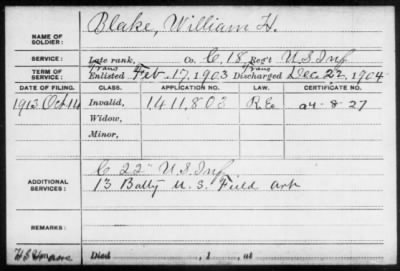 NAME OF SOLDIER: Blake, William H.
SERVICE: Late rank, Co. C, 18 Reg't U.S. Inf
TERM OF SERVICE: Trans Enlisted Feb. 17, 1903 Trans Discharged Dec. 22, 1904
DATE OF FILING. CLASS. APPLICATION NO. LAW. CERTIFICATE NO.
1913 Oct 14 Invalid, 1411,803
Widow,
Minor,
C 22" U.S. Inf
ADDITIONAL SERVICES: 13 Batty U.S. Field Art
REMARKS:
Died , 1 , at